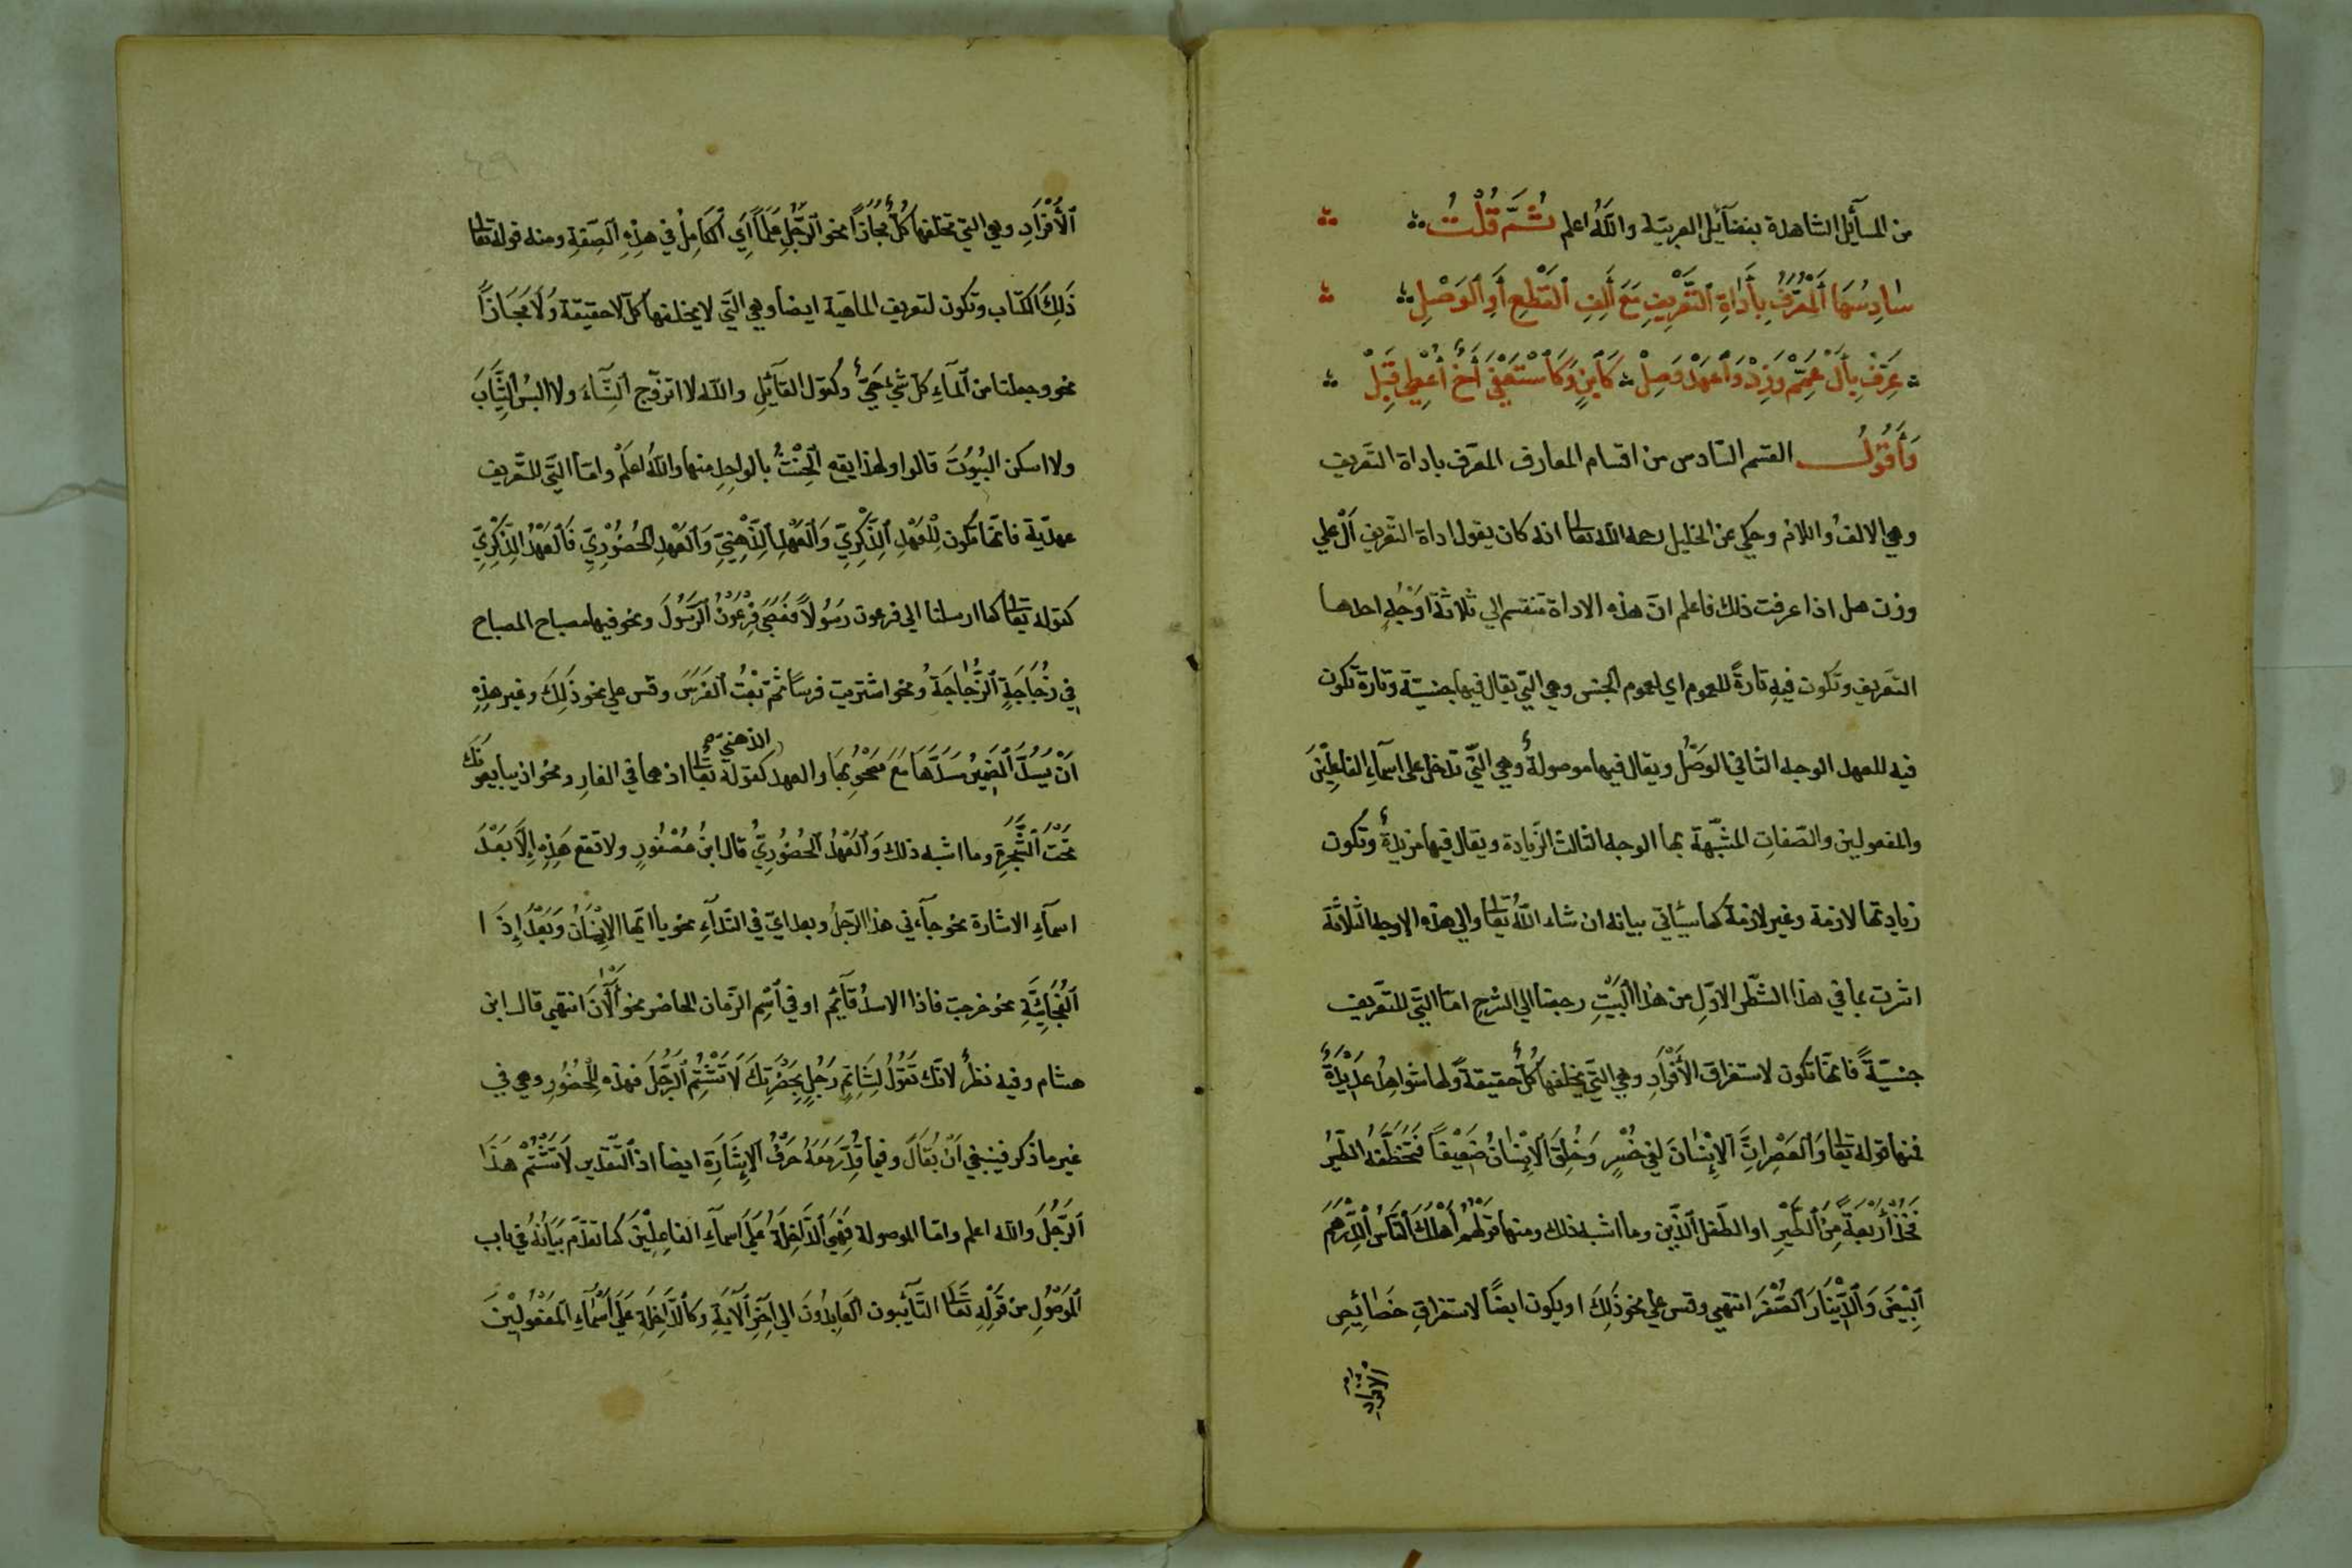 من المسآئل الشاهدة بفضآئل العربيّة والله اعلم ثُمَّ قُلْتُ
سادِسُهَا المُعَرَّفُ بِأَداةِ التَّعْرِيفِ مَعَ أَلِفِ القَطْعِ أَوِ الوَصْلِ
عَرِّفْ بِأَلْ عَمِّمْ وَزِدْ وَاعْهَدْ وَصِلْ
وَأَقُولُ القسم السّادس من اقسام المعارف المعرّف باداة التعريف
وهي الالفُ واللامُ وحكي عن الخليل رحمه الله تعالى انه كان يقول اداة التعريف اَلْ علي
وزن هل اذا عرفت ذلك فاعلم انّ هذه الاداة تنقسم الي ثلاثة اوْجُهٍ احدها
التعريف وتكون فيهِ تارةً للعموم اي لعموم الجنس وهي التي يقال فيها جنسيّة وتارة تكون
فيه للعهد الوجه الثاني الوَصْلُ ويقال فيها موصولةٌ وهي الّتي تدخل على اسمآءِ الفاعلِيْنَ
والمفعولين والصّفاتِ المشبّهة بها الوجه الثالث الزّيادة ويقال فيها مزيدةٌ وتكون
زيادتها لازمة وغير لازمة كما سيأتي بيانه ان شاء اللّهُ تعالى والي هذه الاوجه الثلاثة
اشرت بما في هذا الشّطر الاوّل من هذا البَيْتِ رجعنا الي الشرح امّا الّتي للتّعريف
جنسيّةً فانّها تكون لاستغراق الأَفْرادِ وهي التي يخلفها كلٌّ حقيقةً ولها شواهدُ عدَيْدَةٌ
فمنها قوله تعالى وَالعَصْرِ انَّ الإِنْسَانَ لفي خُسْرٍ وَخُلِقَ الاِنْسَانُ ضَعِيْفًا فَتَخْطَفُهُ الطّيرُ
فَخُذْ أَرْبَعَةً مِنَ الطَّيْرِ او الطّفل الّذين وما اشبه ذلك ومنها قولهُمْ أَهْلَكَ النّاسَ الدِّرْهَمُ
البِيْضُ وَالدِّيْنَارُ الصُّفْرُ انتهي وقس علي نحو ذَلِكَ او يكون ايضًا لاستغراقِ خَصائِصِ
الافراد
الأَفْرَادِ وهي التي تخلفها كلٌّ مجازًا نحو الرَّجُلِ عِلْمًا أَي الكَامِلُ في هذِهِ الصِّفَةِ ومنه قوله تعالى
ذَلِكَ الكتاب وتكون لتعريف الماهيّة ايضا وهي الّتي لا يخلفها كلٌّ لا حقيقة وَلَا مَجَازًا
نحو وجعلنا من المآءِ كلّ شيْءٍ حَيٍّ وكقول القآئلِ والله لا اتزوّج النِّسَاءَ ولا البسُ الثِّيَابَ
ولا اسكن البُيُوتَ قالوا ولهذا يقع الحِنْثُ بالواحِدِ منها واللهُ اعلمْ وامّا الّتي للتّعريف
عهديّة فانّها تكون لِلْعَهْدِ الذِّكْرِيِّ وَالعَهْدِ الذِّهْنِيِّ وَالعَهْدِ الحُضُوْرِيِّ فَالعَهْدُ الذِّكْرِيّ
كقوله تعالى كما ارسلنا الي فرعون رَسُولًا فَعَصَى فِرْعَونُ الرَّسُولَ ونحو فيها مصباح المصباح
فِي زُجَاجَةٍ الزُّجَاجَةُ ونحو اشتريت فرسًا ثمّ بعْتُ الفَرَسَ وقس علي نحو ذَلِكَ وغير هذِهِ
اَنْ يَسُدَّ الضَمِيْرُ مَسَدَّهَا مَعَ مَصْحُوْبِهَا والعهد الذهنيّ كقوله تعالى اذ هما في الغارِ ونحو اذ يبايعونَكَ
تَحْتَ الشَّجَرَةِ وما اشبه ذلك وَالعَهْدُ الحُضُوْرِيُّ قال ابنُ عصْفُورٍ ولا تقع هَذِهِ اِلَّا بَعْدَ
اسمآءِ الاشارة نحو جآءني هذا الرّجلُ وبعد ايّ في النّدآءِ نحو يا ايّها الاِنْسَانُ وَبَعْدَ إِذَا
الفُجَائِيَّةِ نحو خرجت فاذا الاسدُ قآئم او في اسْمِ الزّمان الحاضر نحو الْآنَ انتهي قال ابن
هشام وفيه نظرٌ لانّك تَقُوْلُ لِشَاتِمِ رَجُلٍ بِحَضْرَتِكَ لَا تَشْتُمِ الرَّجُلَ فهذه لِلْحُضُوْرِ وهي في
غير ما ذُكر فينبغي اَنْ يُقَالَ وفيما قُدِّرَ مَعَهُ حَرْفُ الاِشَارَةِ ايضا اذ التّقدير لَا تَشْتُمْ هَذَا
الرَّجُلَ والله اعلم وامّا الموصولة فَهِيَ الدَّاخِلَةُ عَلَى اسمآءِ الفاعِلِيْنَ كما تقدّمَ بَيَانُهُ في باب
المَوصُوْلِ من قَوْلِهِ تعالى التّآئبون العَابِدُوْنَ الي اخِرِ الآيَةِ وَكَالدَّاخِلَةِ عَلَى اسْمَاءِ المَفْعُوْلِيْنَ